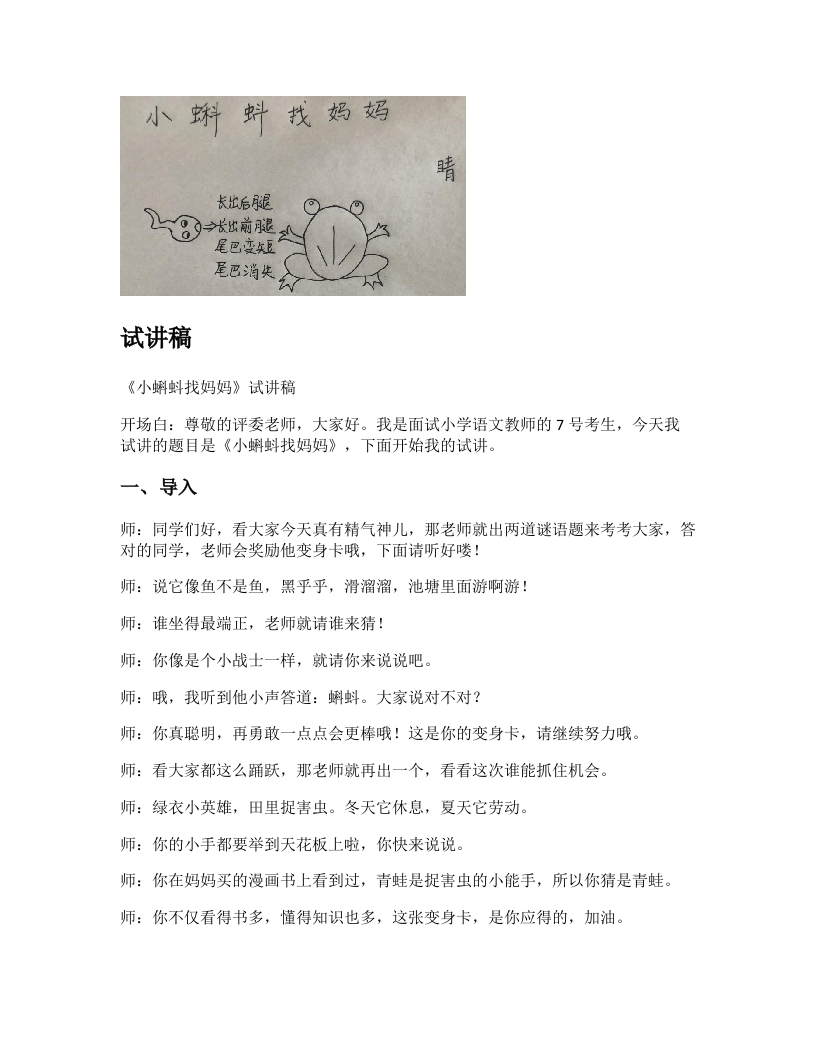 小蝌蚪找妈妈
晴
长出后腿
长出前腿
尾巴变短
尾巴消失
试讲稿
《小蝌蚪找妈妈》试讲稿
开场白：尊敬的评委老师，大家好。我是面试小学语文教师的 7 号考生，今天我
试讲的题目是《小蝌蚪找妈妈》，下面开始我的试讲。
一、导入
师：同学们好，看大家今天真有精气神儿，那老师就出两道谜语题来考考大家，答
对的同学，老师会奖励他变身卡哦，下面请听好喽！
师：说它像鱼不是鱼，黑乎乎，滑溜溜，池塘里面游啊游！
师：谁坐得最端正，老师就请谁来猜！
师：你像是个小战士一样，就请你来说说吧。
师：哦，我听到他小声答道：蝌蚪。大家说对不对？
师：你真聪明，再勇敢一点点会更棒哦！这是你的变身卡，请继续努力哦。
师：看大家都这么踊跃，那老师就再出一个，看看这次谁能抓住机会。
师：绿衣小英雄，田里捉害虫。冬天它休息，夏天它劳动。
师：你的小手都要举到天花板上啦，你快来说说。
师：你在妈妈买的漫画书上看到过，青蛙是捉害虫的小能手，所以你猜是青蛙。
师：你不仅看得书多，懂得知识也多，这张变身卡，是你应得的，加油。